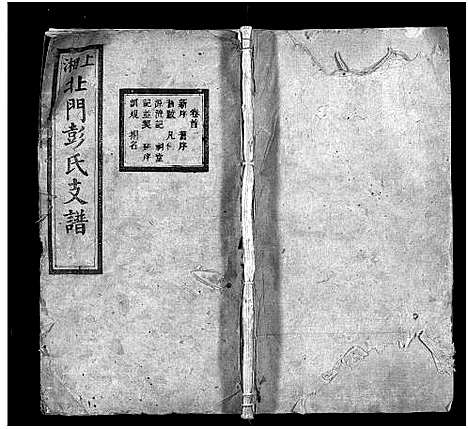 上湘
北門彭氏支譜
卷首
新序 舊序
凡例
源流記 祠堂
記並契 
訓規 捐名